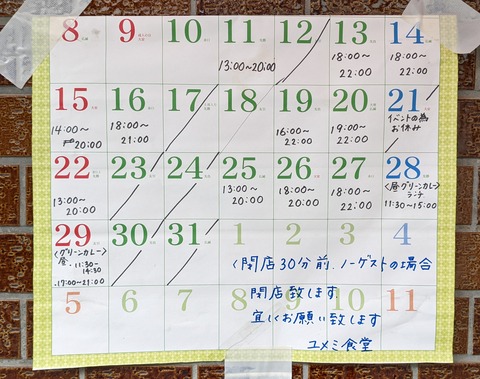 8 9 10 11 12 13 14
13:00～20:00
18:00～
22:00
18:00～
22:00
15 16 17 18 19 20 21
14:00～
20:00
18:00～
21:00
16:00～
22:00
19:00～
22:00
イベントの為
お休み
22 23 24 25 26 27 28
13:00～
20:00
13:00～
20:00
18:00～
20:00
18:00～
22:00
〈昼グリーンカレー〉
ランチ
11:30～15:00
29 30 31 1 2 3 4
〈グリーンカレー〉
昼 11:30-
14:30
17:00～21:00
〈閉店30分前、ノーゲストの場合
5 6 7 8 9 10 11
閉店致します
宜しくお願い致します
ユメミ食堂